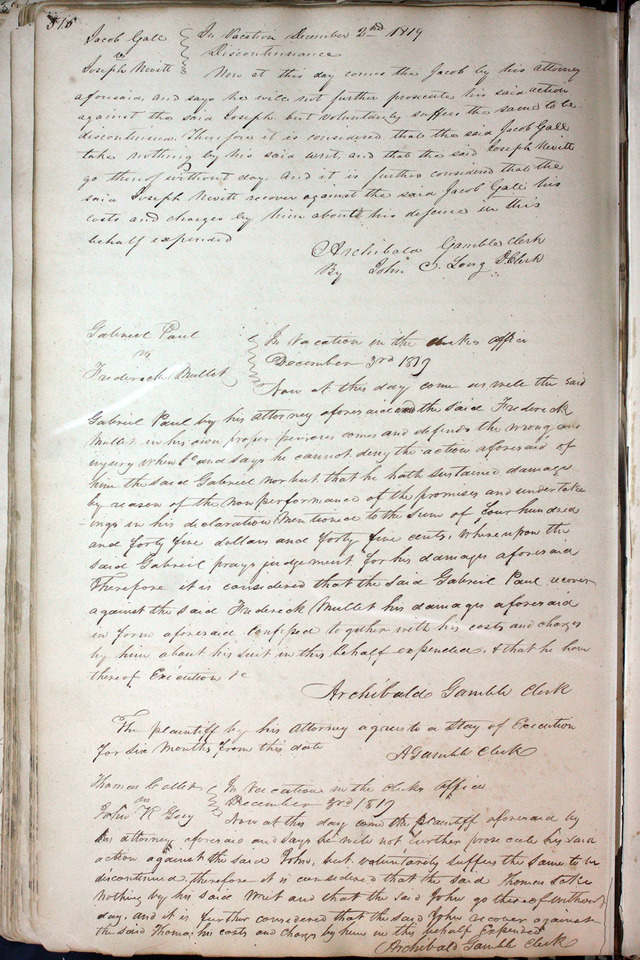 Jacob Gall In Vacation December 2nd 1819
vs Discontinuance
Joseph Nevitt Now at this day comes the Jacob by his attorney
aforesaid, and says he will not further prosecute his said action
against the said Joseph but voluntarily suffers the same to be
discontinued. Therefore it is considered that the said Jacob Gall
take nothing by his said writ, and that the said Joseph Nevitt
go thereof without day. And it is further considered that the
said Joseph Nevitt recover against the said Jacob Gall his
costs and charges by him about his defence in this
behalf expended
Archibald Gamble Clerk
By John S. Long D. Clerk
Gabriel Paul In Vacation in the clerks office
vs December 3rd 1819
Frederick Mullet Now at this day come as well the said
Gabriel Paul by his attorney aforesaid and the said Frederick
Mullet in his own proper person comes and defends the wrong and
injury when &c and says he cannot deny the action aforesaid of
him the said Gabriel nor but that he hath sustained damage
by reason of the non performance of the promises and undertake
ings in his declaration mentioned to the sum of four hundred
and forty five dollars and forty five cents, whereupon the
said Gabriel prays judgement for his damages aforesaid
Therefore it is considered that the said Gabriel Paul recover
against the said Frederick Mullet his damages aforesaid
in form aforesaid confessed together with his costs and charges
by him about his suit in this behalf expended. & that he have
thereof Execution &c
Archibald Gamble Clerk
The plaintiff by his attorney agrees to a Stay of Execution
for six months from this date A Gamble Clerk
Thomas In Vacation in the clerks office
vs December 3rd 1819
John K Now at this day came the plaintiff aforesaid by
his attorney aforesaid and says he will not further prosecute his said
action against the said John, but voluntarily suffers the same to be
discontinued, therefore it is considered that the said Thomas take
nothing by his said writ and that the said John go thereof without
day. and it is further considered that the said John recover against
the said Thomas his costs and charges by him in this behalf Expended
Archibald Gamble Clerk